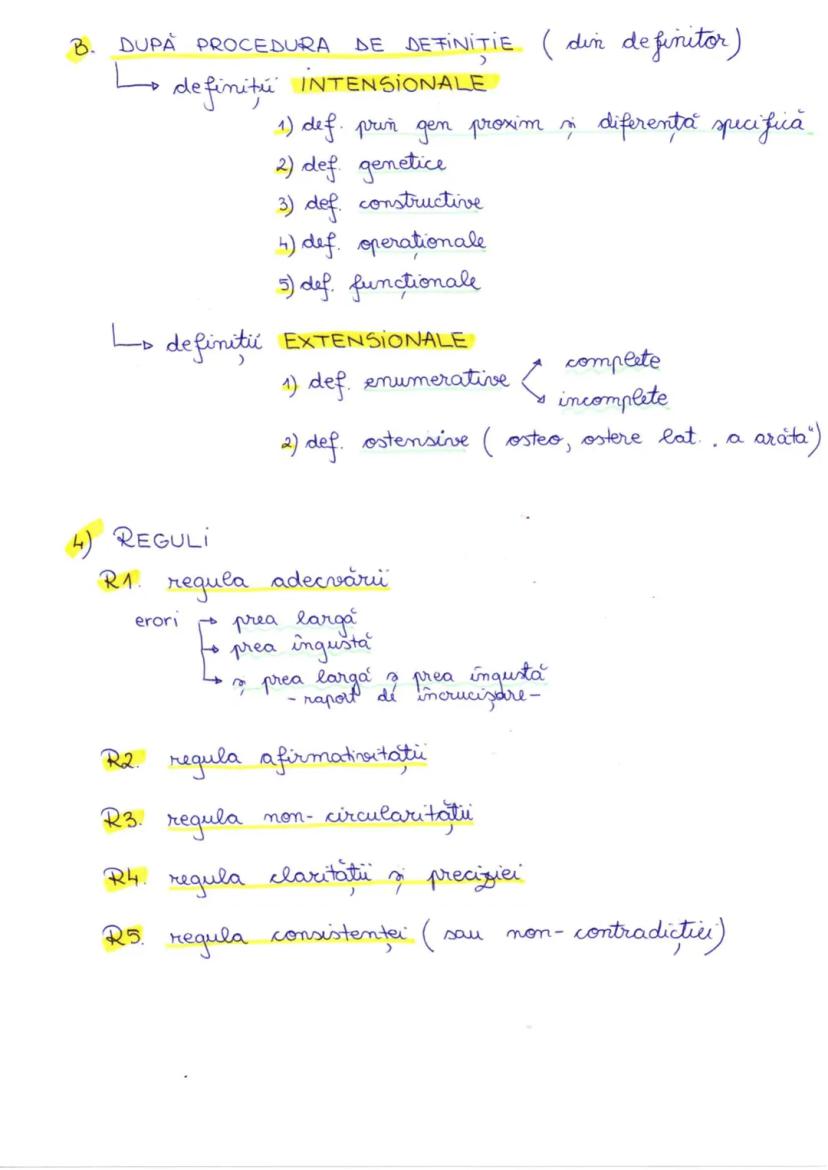 B. DUPĂ PROCEDURA DE DEFINIȚIE (din definitor)
↳ definiții INTENSIONALE
1) def. prin gen proxim și diferență specifică
2) def. genetice
3) def. constructive
4) def. operaționale
5) def. funcționale
↳ definiții EXTENSIONALE
complete
1) def. enumerative <
incomplete
2) def. ostensive ( osteo, ostere lat. „a arăta")
4) REGULI
R1. regula adecvării
erori → prea largă
→ prea îngustă
→ și prea largă și prea îngustă
- raport de încrucișare -
R2. regula afirmativității
R3. regula non-circularității
R4. regula clarității și preciziei
R5. regula consistenței ( sau non-contradicției)